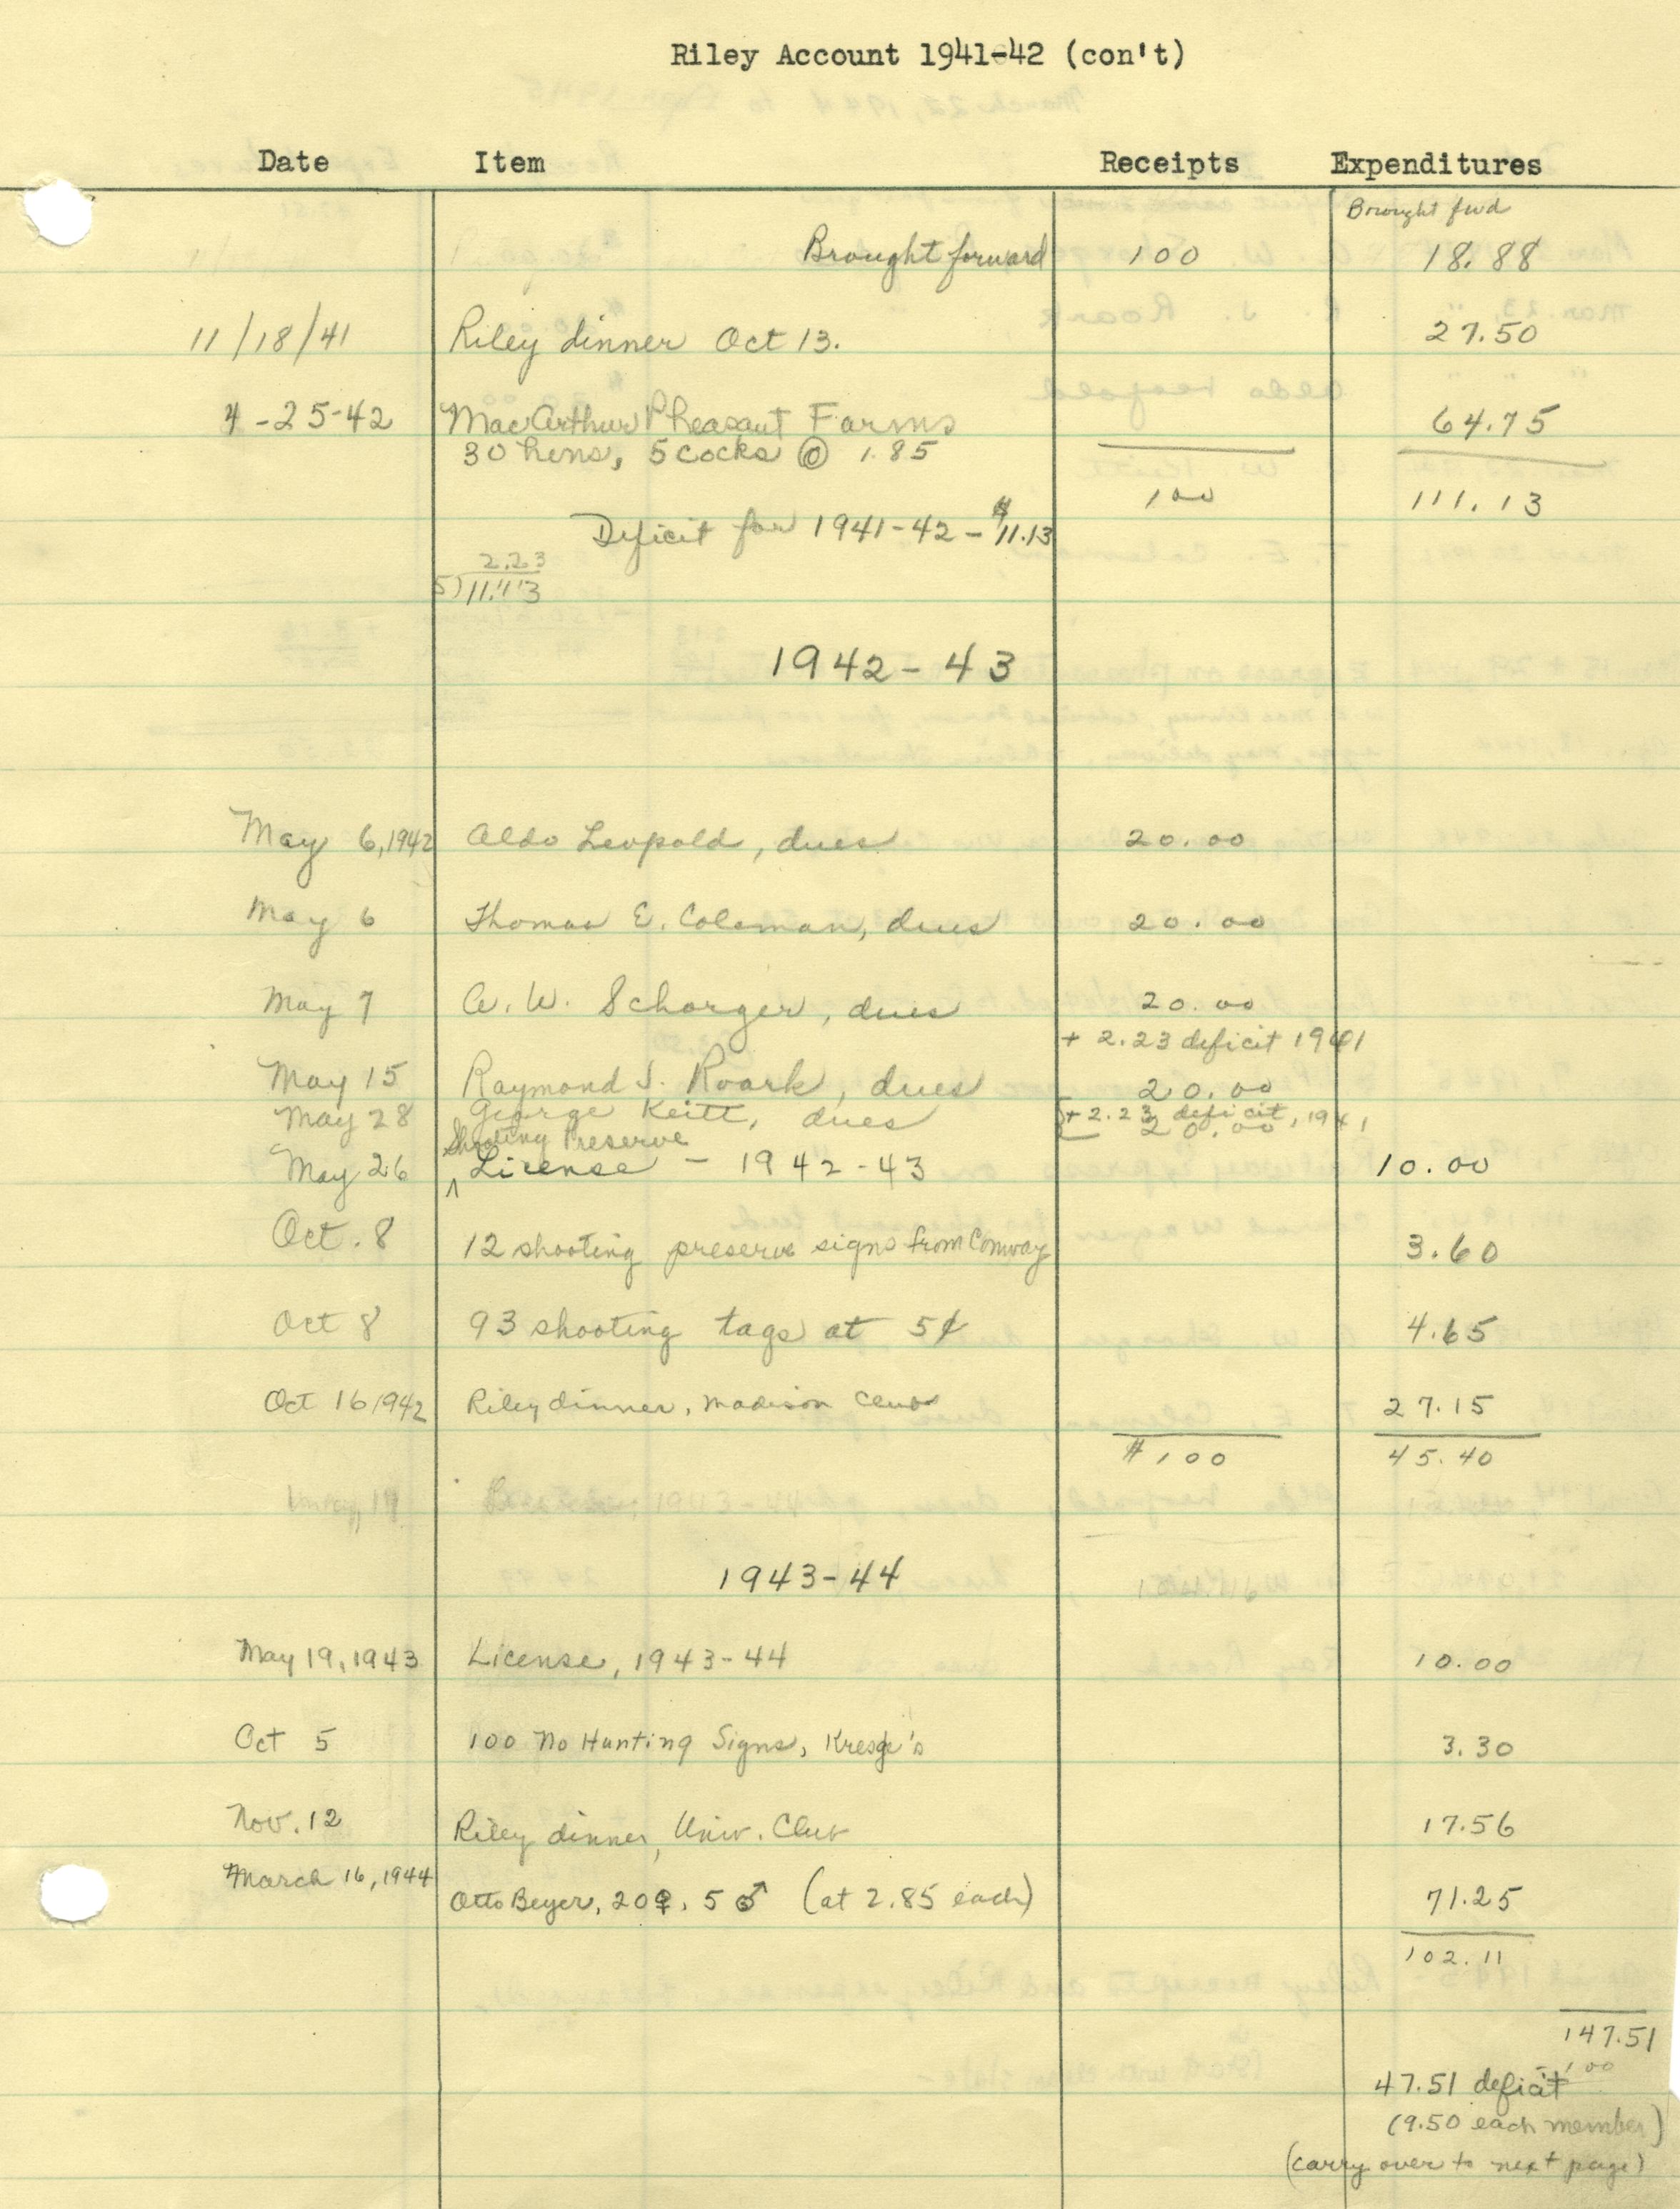 Riley Account 1941-42 (con't)
Date Item Receipts Expenditures
Brought fwd
Brought forward 100 18.88
11/18/41 Riley dinner Oct 13. 27.50
4-25-42 MacArthur Pheasant Farms 64.75
30 hens, 5 cocks @ 1.85
100 111.13
Deficit for 1941-42 - $11.13
2.23
5)11.13
1942-43
May 6, 1942 Aldo Leopold, dues 20.00
May 6 Thomas E. Coleman, dues 20.00
May 7 A. W. Schorger, dues 20.00
+ 2.23 deficit 1941
May 15 Raymond J. Roark, dues 20.00
+ 2.23 deficit, 1941
May 28 George Keitt, dues 20.00
Shooting Preserve
May 26 ^ License - 1942-43 10.00
Oct. 8 12 shooting preserve signs from Conway 3.60
Oct 8 93 shooting tags at 5¢ 4.65
Oct 16 1942 Riley dinner, Madison Club 27.15
$100 45.40
1943-44
May 19, 1943 License, 1943-44 10.00
Oct 5 100 No Hunting Signs, Kresge's 3.30
Nov. 12 Riley dinner, Univ. Club 17.56
March 16, 1944 Otto Beyer, 20♀, 5♂ (at 2.85 each) 71.25
102.11
147.51
-100
47.51 deficit
(9.50 each member)
(carry over to next page)